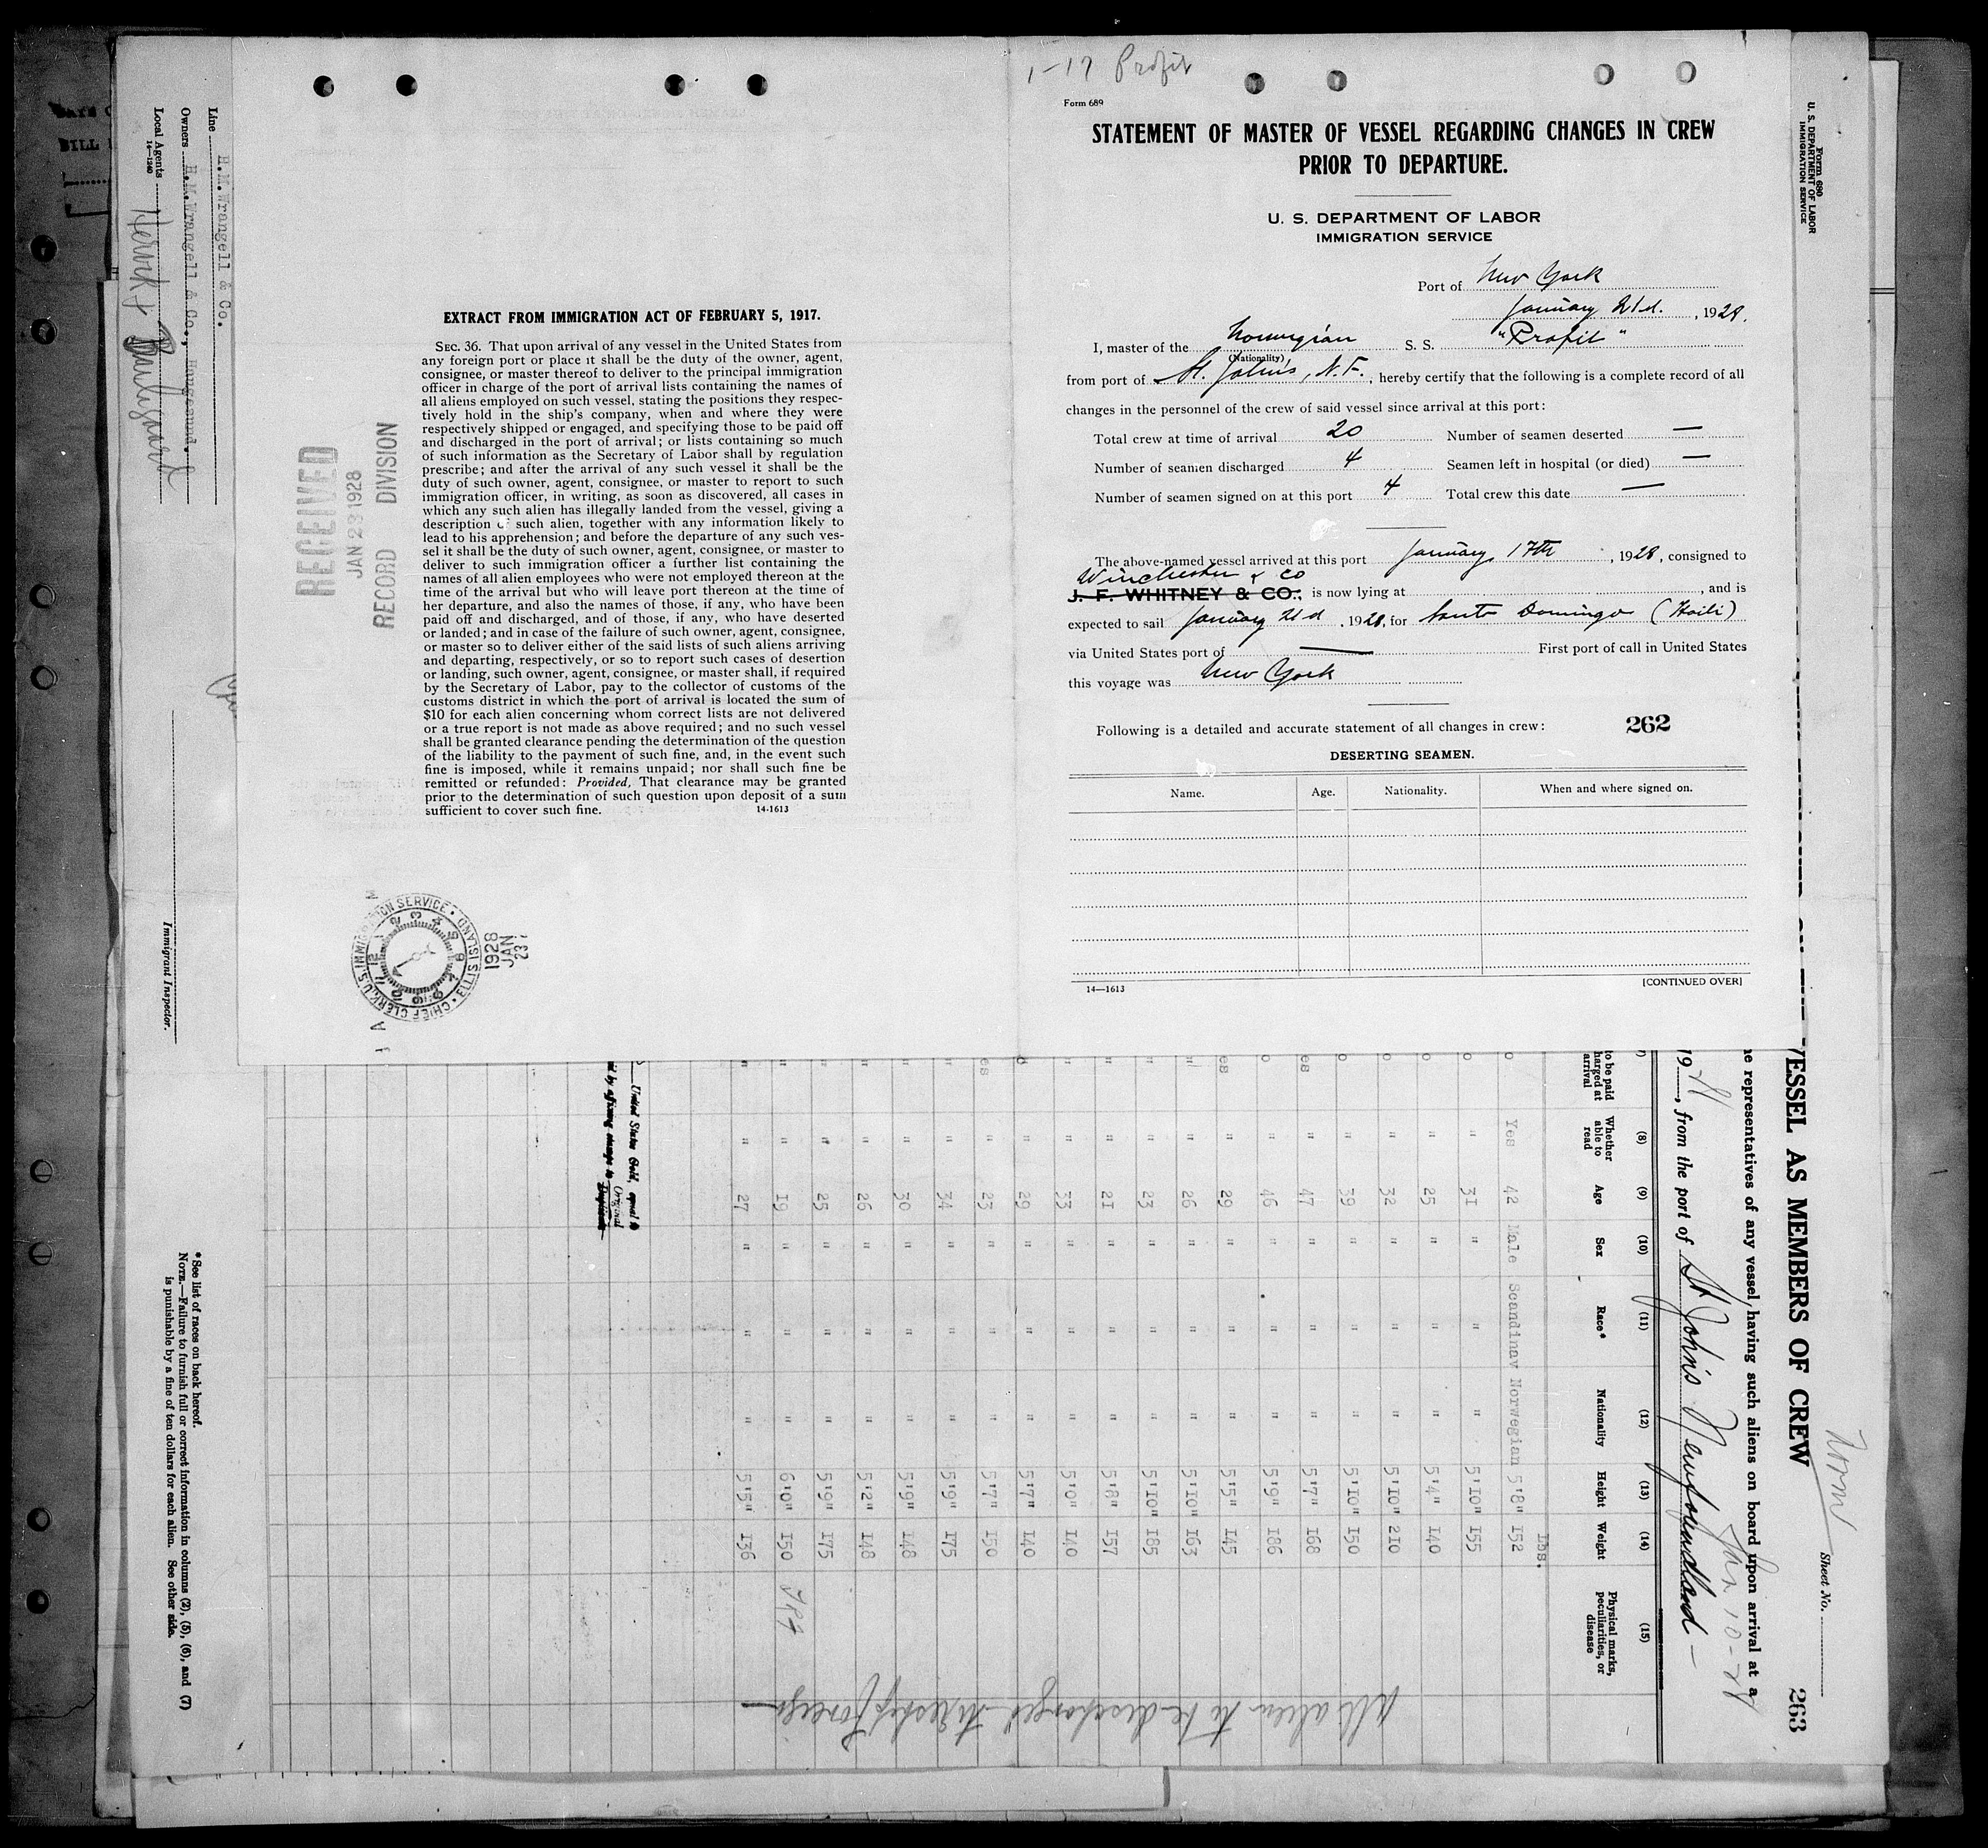 1-17 Profit
Form 689
STATEMENT OF MASTER OF VESSEL REGARDING CHANGES IN CREW
PRIOR TO DEPARTURE.
U. S. DEPARTMENT OF LABOR
IMMIGRATION SERVICE
Port of New York
January 21d. , 1928.
I, master of the Norwegian S. S. "Profit"
(Nationality)
from port of St. John's, N.F. , hereby certify that the following is a complete record of all
changes in the personnel of the crew of said vessel since arrival at this port:
Total crew at time of arrival 20 Number of seamen deserted —
Number of seamen discharged 4 Seamen left in hospital (or died) —
Number of seamen signed on at this port 4 Total crew this date —
The above-named vessel arrived at this port January 17th , 1928, consigned to
Winchester & Co
J. F. WHITNEY & CO., is now lying at , and is
expected to sail January 21d , 1928, for Santo Domingo (Haiti)
via United States port of — First port of call in United States
this voyage was New York
Following is a detailed and accurate statement of all changes in crew: 262
DESERTING SEAMEN.
Name. Age. Nationality. When and where signed on.
14—1613 [CONTINUED OVER]
EXTRACT FROM IMMIGRATION ACT OF FEBRUARY 5, 1917.
SEC. 36. That upon arrival of any vessel in the United States from
any foreign port or place it shall be the duty of the owner, agent,
consignee, or master thereof to deliver to the principal immigration
officer in charge of the port of arrival lists containing the names of
all aliens employed on such vessel, stating the positions they respec-
tively hold in the ship's company, when and where they were
respectively shipped or engaged, and specifying those to be paid off
and discharged in the port of arrival; or lists containing so much
of such information as the Secretary of Labor shall by regulation
prescribe; and after the arrival of any such vessel it shall be the
duty of such owner, agent, consignee, or master to report to such
immigration officer, in writing, as soon as discovered, all cases in
which any such alien has illegally landed from the vessel, giving a
description of such alien, together with any information likely to
lead to his apprehension; and before the departure of any such ves-
sel it shall be the duty of such owner, agent, consignee, or master to
deliver to such immigration officer a further list containing the
names of all alien employees who were not employed thereon at the
time of the arrival but who will leave port thereon at the time of
her departure, and also the names of those, if any, who have been
paid off and discharged, and of those, if any, who have deserted
or landed; and in case of the failure of such owner, agent, consignee,
or master so to deliver either of the said lists of such aliens arriving
and departing, respectively, or so to report such cases of desertion
or landing, such owner, agent, consignee, or master shall, if required
by the Secretary of Labor, pay to the collector of customs of the
customs district in which the port of arrival is located the sum of
$10 for each alien concerning whom correct lists are not delivered
or a true report is not made as above required; and no such vessel
shall be granted clearance pending the determination of the question
of the liability to the payment of such fine, and, in the event such
fine is imposed, while it remains unpaid; nor shall such fine be
remitted or refunded: Provided, That clearance may be granted
prior to the determination of such question upon deposit of a sum
sufficient to cover such fine. 14-1613
RECEIVED
JAN 23 1928
RECORD DIVISION
CHIEF CLERK, U.S. IMMIGRATION SERVICE • ELLIS ISLAND
1928
JAN
23
Line H.M.Wrangell & Co.
Owners H.M.Wrangell & Co., Haugesund.
Local Agents
14-1240
Immigrant Inspector.
Form 680
U. S. DEPARTMENT OF LABOR
IMMIGRATION SERVICE
Sheet No.
263
VESSEL AS MEMBERS OF CREW
Jan 10-28
representatives of any vessel having such aliens on board upon arrival at a
1928, from the port of St John's Newfoundland –
to be paid
arrival
(8) Whether able to read
(9) Age
(10) Sex
(11) Race*
(12) Nationality
(13) Height
(14) Weight
(15) Physical marks, peculiarities, or disease
Lbs.
Yes 42 Male Scandinav Norwegian 5'8" 152
" 31 " " " 5'10" 155
" 25 " " " 5'4" 140
" 32 " " " 5'10" 210
" 39 " " " 5'10" 150
" 47 " " " 5'7" 168
" 46 " " " 5'9" 186
" 29 " " " 5'5" 145
" 26 " " " 5'10" 163
" 23 " " " 5'10" 185
" 21 " " " 5'8" 157
" 33 " " " 5'0" 140
" 29 " " " 5'7" 140
" 23 " " " 5'7" 150
" 34 " " " 5'9" 175
" 30 " " " 5'9" 148
" 26 " " " 5'2" 148
" 25 " " " 5'9" 175
" 19 " " " 6'0" 150
" 27 " " " 5'5" 136
United States Gold, equal to
by affixing stamps to Original
*See list of races on back hereof.
NOTE.—Failure to furnish full or correct information in columns (2), (5), (6), and (7)
is punishable by a fine of ten dollars for each alien. See other side.